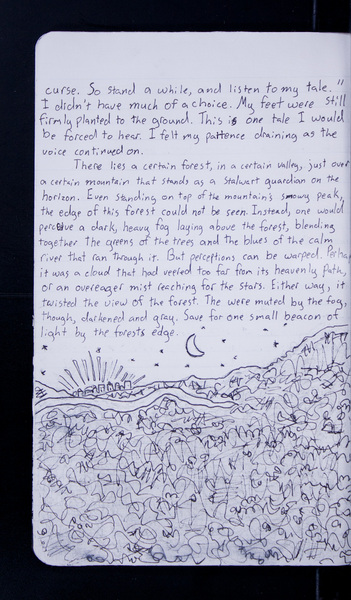 curse. So stand a while, and listen to my tale."
I didn't have much of a choice. My feet were still
firmly planted to the ground. This is one tale I would
be forced to hear. I felt my patience draining as the
voice continued on.
There lies a certain forest, in a certain valley, just over
a certain mountain that stands as a stalwart guardian on the
horizon. Even standing on top of the mountain's snowy peak,
the edge of this forest could not be seen. Instead, one would
perceive a dark, heavy fog laying above the forest, blending
together the greens of the trees and the blues of the calm
river that ran through it. But perceptions can be warped. Perha
it was a cloud that had veered too far from its heavenly path,
or an overeager mist reaching for the stars. Either way, it
twisted the view of the forest. The were muted by the fog,
though, darkened and gray. Save for one small beacon of
light by the forests edge.